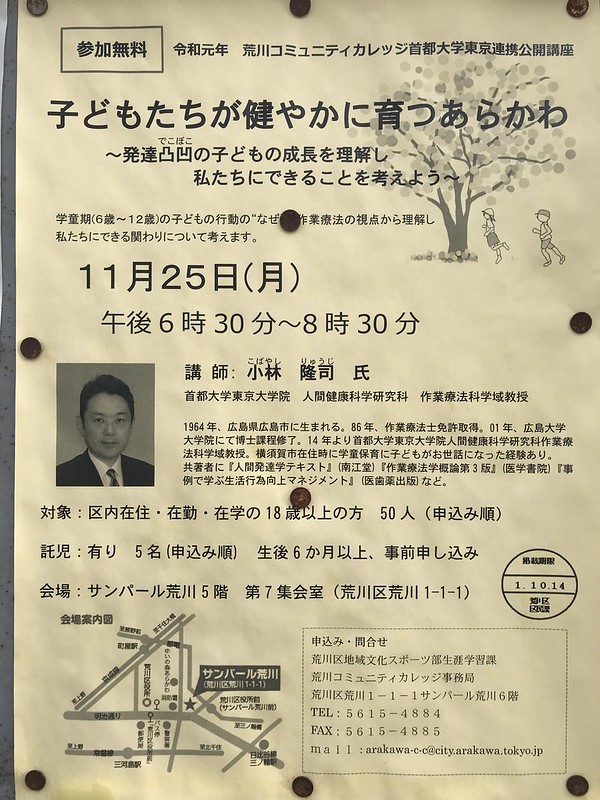 参加無料
令和元年 荒川コミュニティカレッジ首都大学東京連携公開講座
子どもたちが健やかに育つあらかわ
でこぼこ
～発達凸凹の子どもの成長を理解し
私たちにできることを考えよう～
学童期(6歳～12歳)の子どもの行動の“なぜ 作業療法の視点から理解し
私たちにできる関わりについて考えます。
11月25日(月)
午後6時30分～8時30分
こばやし りゅうじ
講師: 小林 隆司 氏
首都大学東京大学院 人間健康科学研究科 作業療法科学域教授
1964年、広島県広島市に生まれる。86年、作業療法士免許取得。01年、広島大学
大学院にて博士課程修了。14年より首都大学東京大学院人間健康科学研究科作業療
法科学域教授。横須賀市在住時に学童保育に子どもがお世話になった経験あり。
共著者に『人間発達学テキスト』(南江堂)『作業療法学概論第3版』(医学書院)『事
例で学ぶ生活行為向上マネジメント』(医歯薬出版)など。
対象：区内在住・在勤・在学の18歳以上の方 50人（申込み順）
託児：有り 5名(申込み順) 生後6か月以上、事前申し込み
会場：サンパール荒川5階 第7集会室（荒川区荒川1-1-1）
掲載期限
1.10.14
荒川区
会場案内図
至熊野前
至千住大橋
町屋駅
都電
ゆいの森あらかわ
京成線
至上野
荒川区役所
消防署
サンパール荒川
(荒川区荒川1-1-1)
荒川区役所前
(サンパール荒川前)
明治通り
至三ノ輪橋
バス停
荒川区役所前
郵便局
警察署
至上野
常磐線
三河島駅
至北千住
日比谷線
三ノ輪駅
申込み・問合せ
荒川区地域文化スポーツ部生涯学習課
荒川コミュニティカレッジ事務局
荒川区荒川1－1－1サンパール荒川6階
TEL：5615－4884
FAX：5615－4885
mail：arakawa-c-c@city.arakawa.tokyo.jp